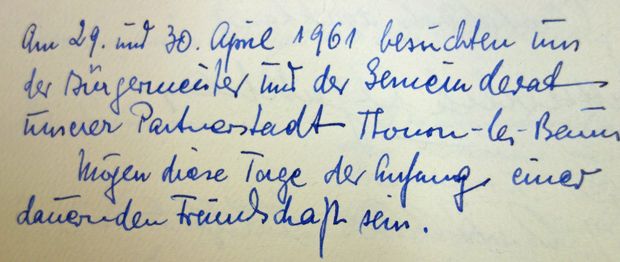 Am 29. und 30. April 1961 besuchten uns
der Bürgermeister und der Gemeinderat
unserer Partnerstadt Thonon-les-Bains
Mögen diese Tage der Anfang einer
dauernden Freundschaft sein.